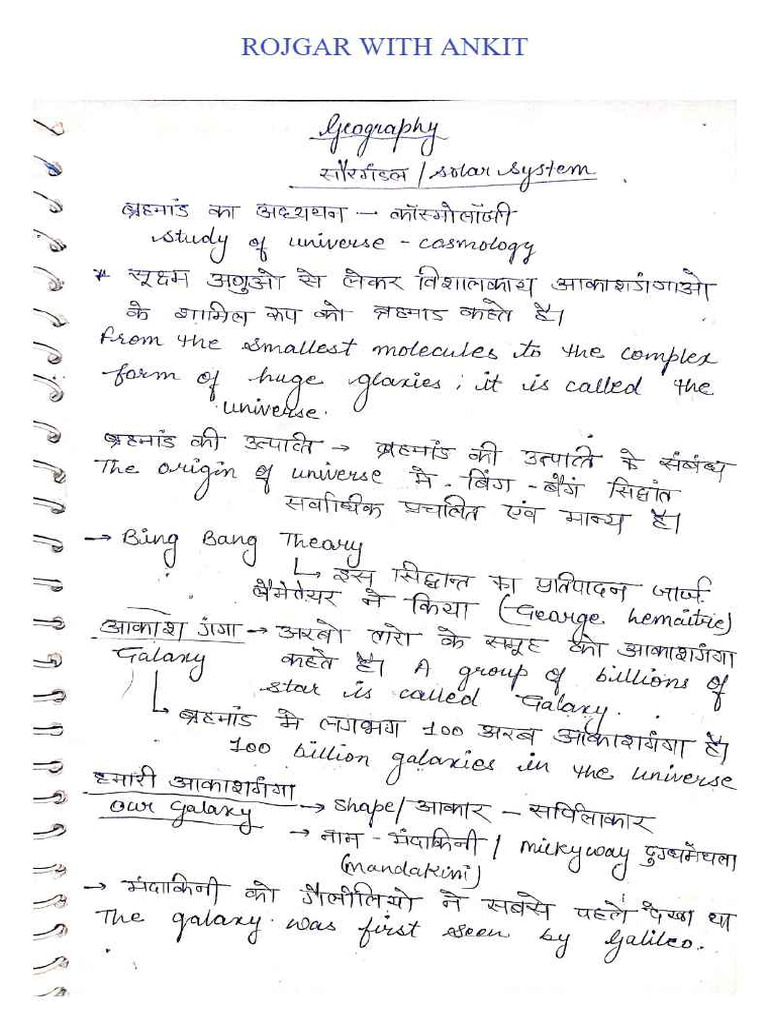 ROJGAR WITH ANKIT
Geography
सौरमंडल / solar system
ब्रहमांड का अध्ययन – कॉस्मोलॉजी
study of universe - cosmology
* सूक्ष्म अणुओ से लेकर विशालकाय आकाशगंगाओ
के शामिल रूप को ब्रहमांड कहते है।
From the smallest molecules to the complex
form of huge glaxies; it is called the
universe.
ब्रहमांड की उत्पत्ति → ब्रहमांड की उत्पत्ति के संबंध
The origin of universe मे - बिंग - बैंग सिद्वांत
सर्वाधिक प्रचलित एंव मान्य है।
→ Bing Bang Theory
↳ इस सिद्धान्त का प्रतिपादन जार्ज
लैमेतेयर ने किया (George lemaitrie)
आकाश गंगा → अरबो तारो के समूह को आकाशगंगा
Galaxy कहते है। A group of billions of
star is called Galaxy.
↳ ब्रहमांड मे लगभग 100 अरब आकाशगंगा है।
100 billion galaxies in the universe
हमारी आकाशगंगा
our galaxy → shape/आकार – सर्पिलाकार
→ नाम - मंदाकिनी / milkyway दुग्धमेखला
(mandakini)
→ मंदाकिनी को गैलीलियो ने सबसे पहले देखा था
The galaxy was first seen by Galileo.